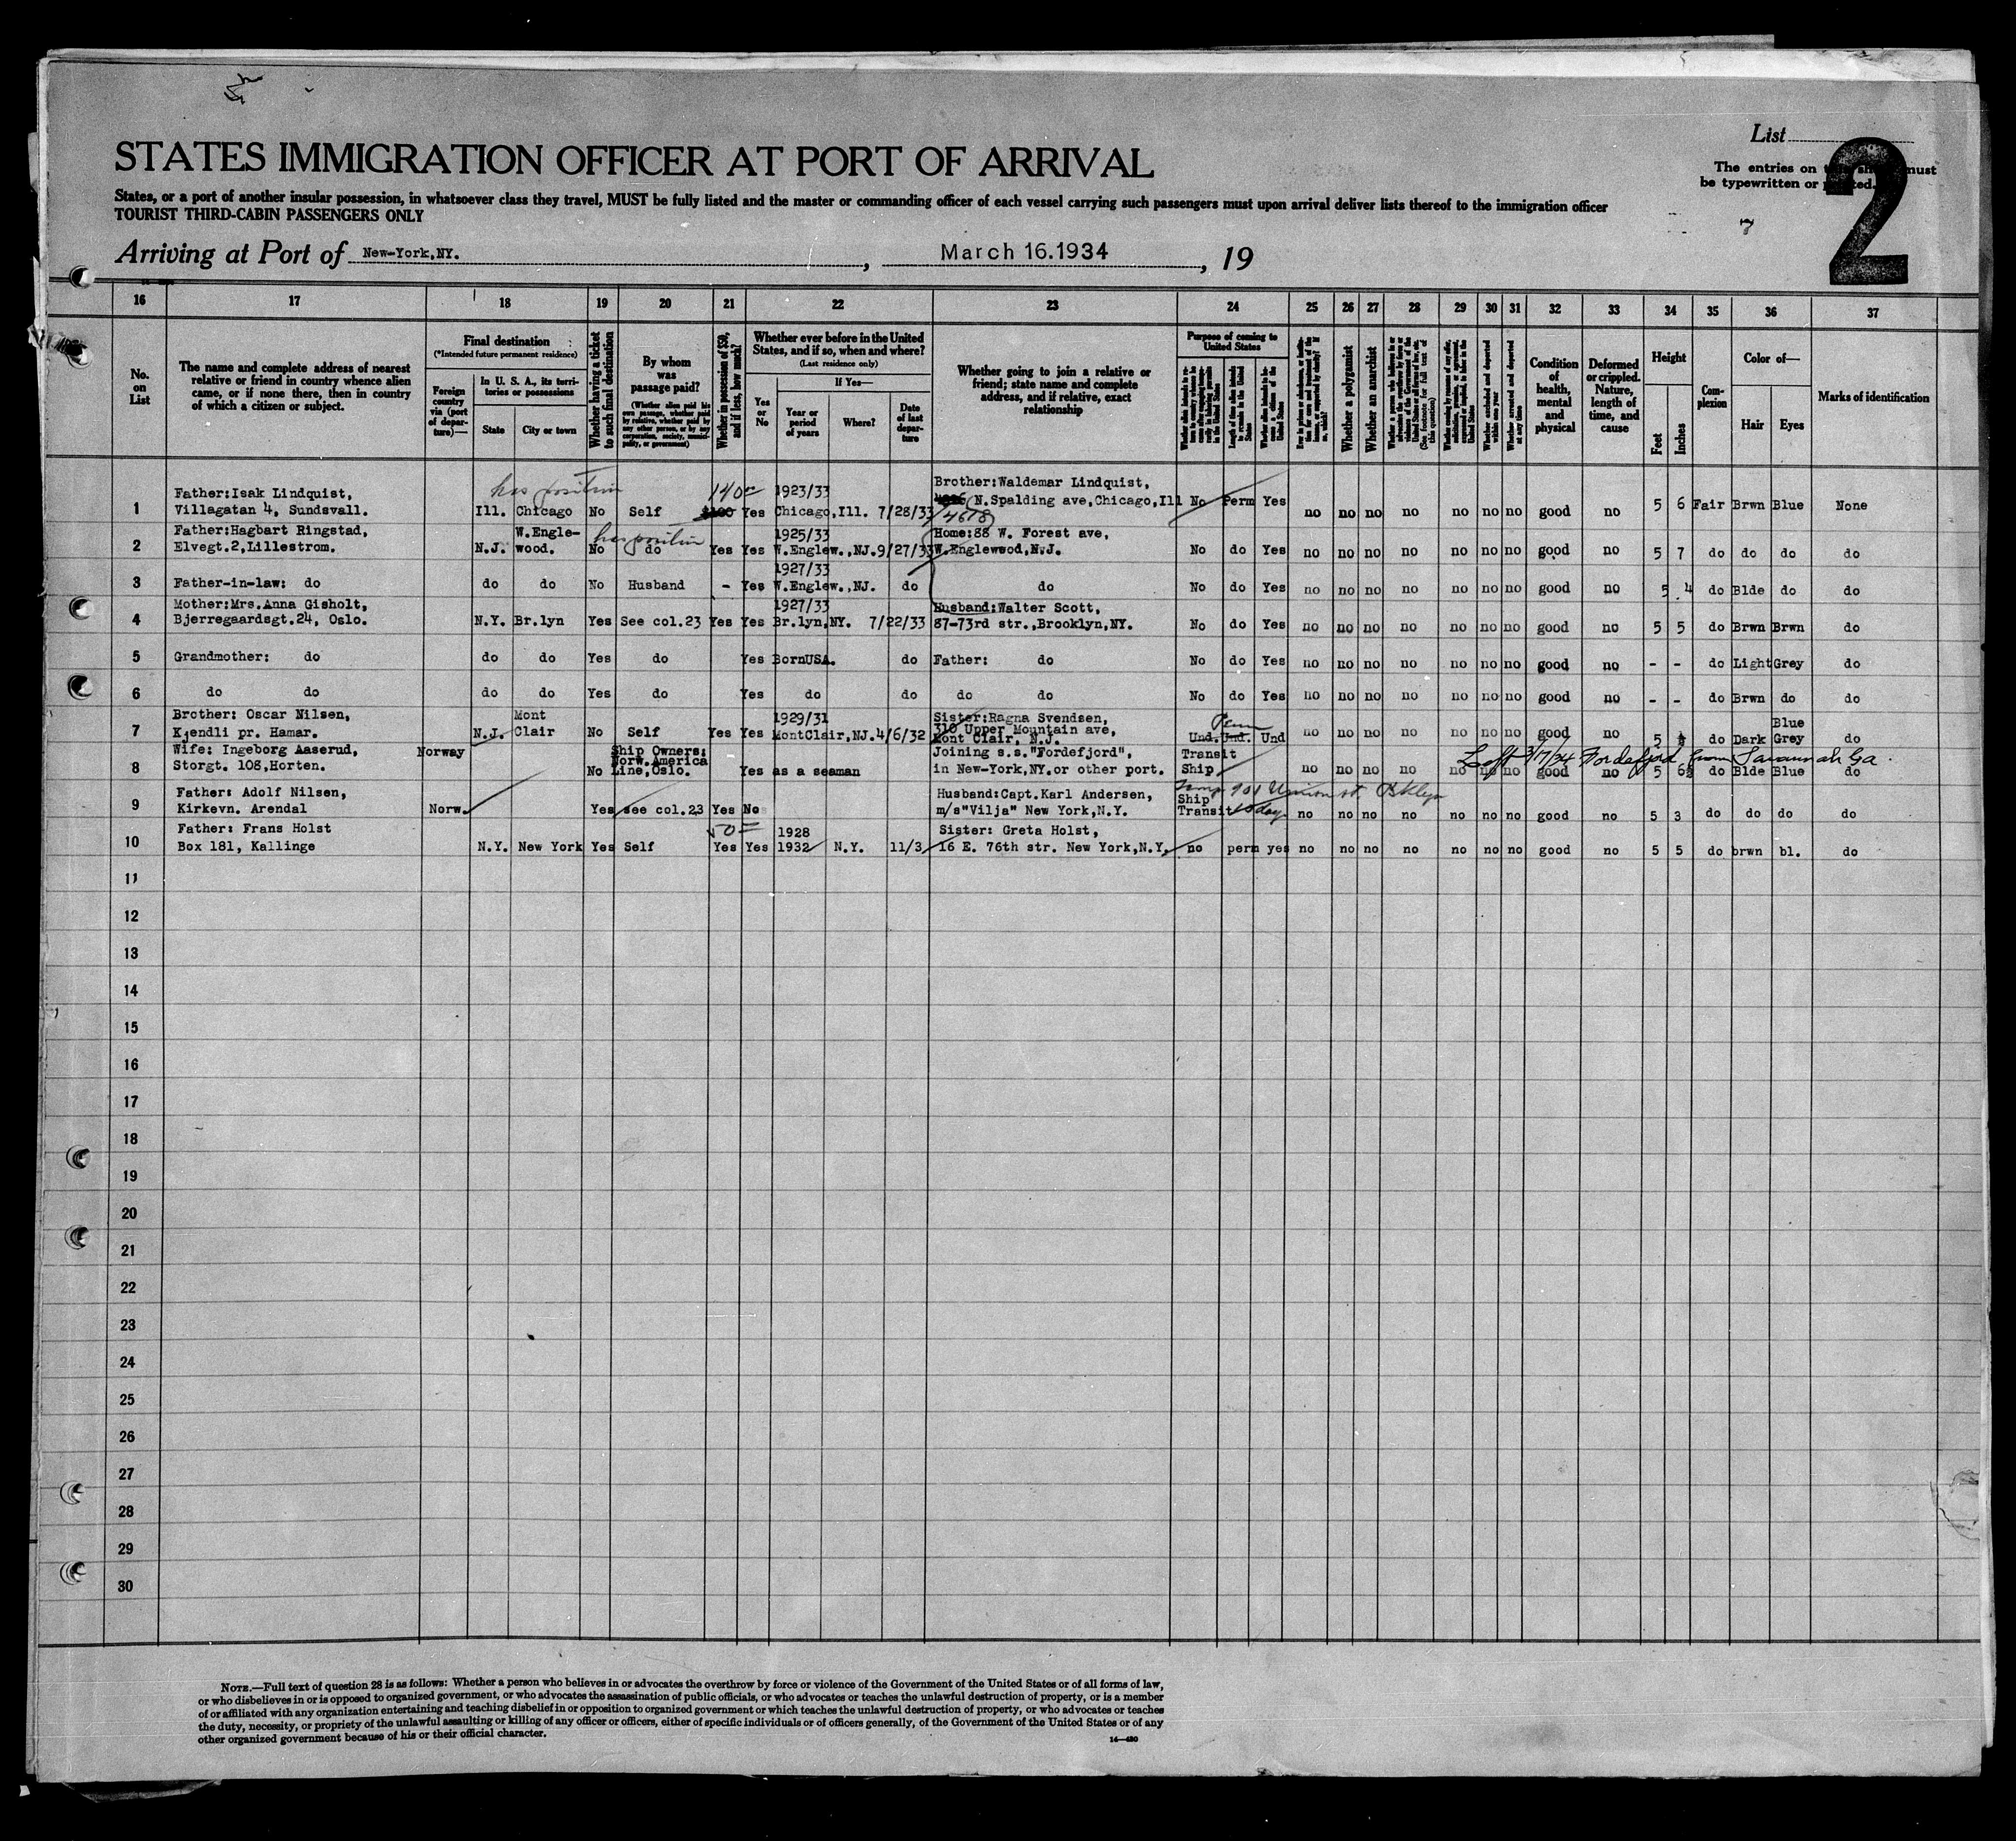 List
2
The entries on must
be typewritten or
STATES IMMIGRATION OFFICER AT PORT OF ARRIVAL
States, or a port of another insular possession, in whatsoever class they travel, MUST be fully listed and the master or commanding officer of each vessel carrying such passengers must upon arrival deliver lists thereof to the immigration officer
TOURIST THIRD-CABIN PASSENGERS ONLY
Arriving at Port of New-York,NY. , March 16.1934 , 19
16 17 18 19 20 21 22 23 24 25 26 27 28 29 30 31 32 33 34 35 36 37
No. on List
The name and complete address of nearest relative or friend in country whence alien came, or if none there, then in country of which a citizen or subject.
Final destination
(*Intended future permanent residence)
Foreign country via (port of departure)—
In U. S. A., its territories or possessions
State
City or town
Whether having a ticket to such final destination
By whom was passage paid?
(Whether alien paid his own passage, whether paid by relative, whether paid by any other person, or by any corporation, society, municipality, or government)
Whether in possession of $50, and if less, how much?
Whether ever before in the United States, and if so, when and where?
(Last residence only)
Yes or No
If Yes—
Year or period of years
Where?
Date of last departure
Whether going to join a relative or friend; state name and complete address, and if relative, exact relationship
Purpose of coming to United States
Whether a polygamist
Whether an anarchist
Condition of health, mental and physical
Deformed or crippled. Nature, length of time, and cause
Height
Feet
Inches
Complexion
Color of—
Hair
Eyes
Marks of identification
has position 140
1 Father:Isak Lindquist, Villagatan 4, Sundsvall. Ill. Chicago No Self $100 Yes 1923/33 Chicago,Ill. 7/28/33 Brother:Waldemar Lindquist, N.Spalding ave,Chicago,Ill 4678 No Perm Yes no no no no no no no good no 5 6 Fair Brwn Blue None
has position
2 Father:Hagbart Ringstad, Elvegt.2,Lillestrom. N.J. W.Engle-wood. No do Yes Yes 1925/33 W.Englew.,NJ. 9/27/33 Home:88 W. Forest ave, W.Englewood,N.J. No do Yes no no no no no no no good no 5 7 do do do do
3 Father-in-law: do do do No Husband - Yes 1927/33 W.Englew.,NJ. do do No do Yes no no no no no no no good no 5 4 do Blde do do
4 Mother:Mrs.Anna Gisholt, Bjerregaardsgt.24, Oslo. N.Y. Br.lyn Yes See col.23 Yes Yes 1927/33 Br.lyn,NY. 7/22/33 Husband:Walter Scott, 87-73rd str.,Brooklyn,NY. No do Yes no no no no no no no good no 5 5 do Brwn Brwn do
5 Grandmother: do do do Yes do Yes BornUSA. do Father: do No do Yes no no no no no no no good no - - do Light Grey do
6 do do do do Yes do Yes do do do do No do Yes no no no no no no no good no - - do Brwn do do
7 Brother: Oscar Nilsen, Kjendli pr. Hamar. N.J. Mont Clair No Self Yes Yes 1929/31 MontClair,NJ. 4/6/32 Sister:Ragna Svendsen, 310 Upper Mountain ave, Mont Clair, N.J. Und. Perm Und. Und no no no no no no no good no 5 do Dark Blue Grey do
8 Wife: Ingeborg Aaserud, Storgt. 108,Horten. Norway No Ship Owners: Norw.America Line,Oslo. Yes as a seaman Joining s.s."Fordefjord", in New-York,NY.or other port. Transit Ship no no no no no no no good no 5 6½ do Blde Blue do
Left 3/17/34 Fordefjord from Savannah Ga.
Temp 901 Union st. Bklyn
9 Father: Adolf Nilsen, Kirkevn. Arendal Norw. Yes see col.23 Yes No Husband:Capt.Karl Andersen, m/s"Vilja" New York,N.Y. Ship Transit days no no no no no no no good no 5 3 do do do do
50
10 Father: Frans Holst Box 181, Kallinge N.Y. New York Yes Self Yes Yes 1928 1932 N.Y. 11/3 Sister: Greta Holst, 16 E. 76th str. New York,N.Y. no perm yes no no no no no no no good no 5 5 do brwn bl. do
11
12
13
14
15
16
17
18
19
20
21
22
23
24
25
26
27
28
29
30
NOTE.—Full text of question 28 is as follows: Whether a person who believes in or advocates the overthrow by force or violence of the Government of the United States or of all forms of law,
or who disbelieves in or is opposed to organized government, or who advocates the assassination of public officials, or who advocates or teaches the unlawful destruction of property, or is a member
of or affiliated with any organization entertaining and teaching disbelief in or opposition to organized government or which teaches the unlawful destruction of property, or who advocates or teaches
the duty, necessity, or propriety of the unlawful assaulting or killing of any officer or officers, either of specific individuals or of officers generally, of the Government of the United States or of any
other organized government because of his or their official character.
14—480